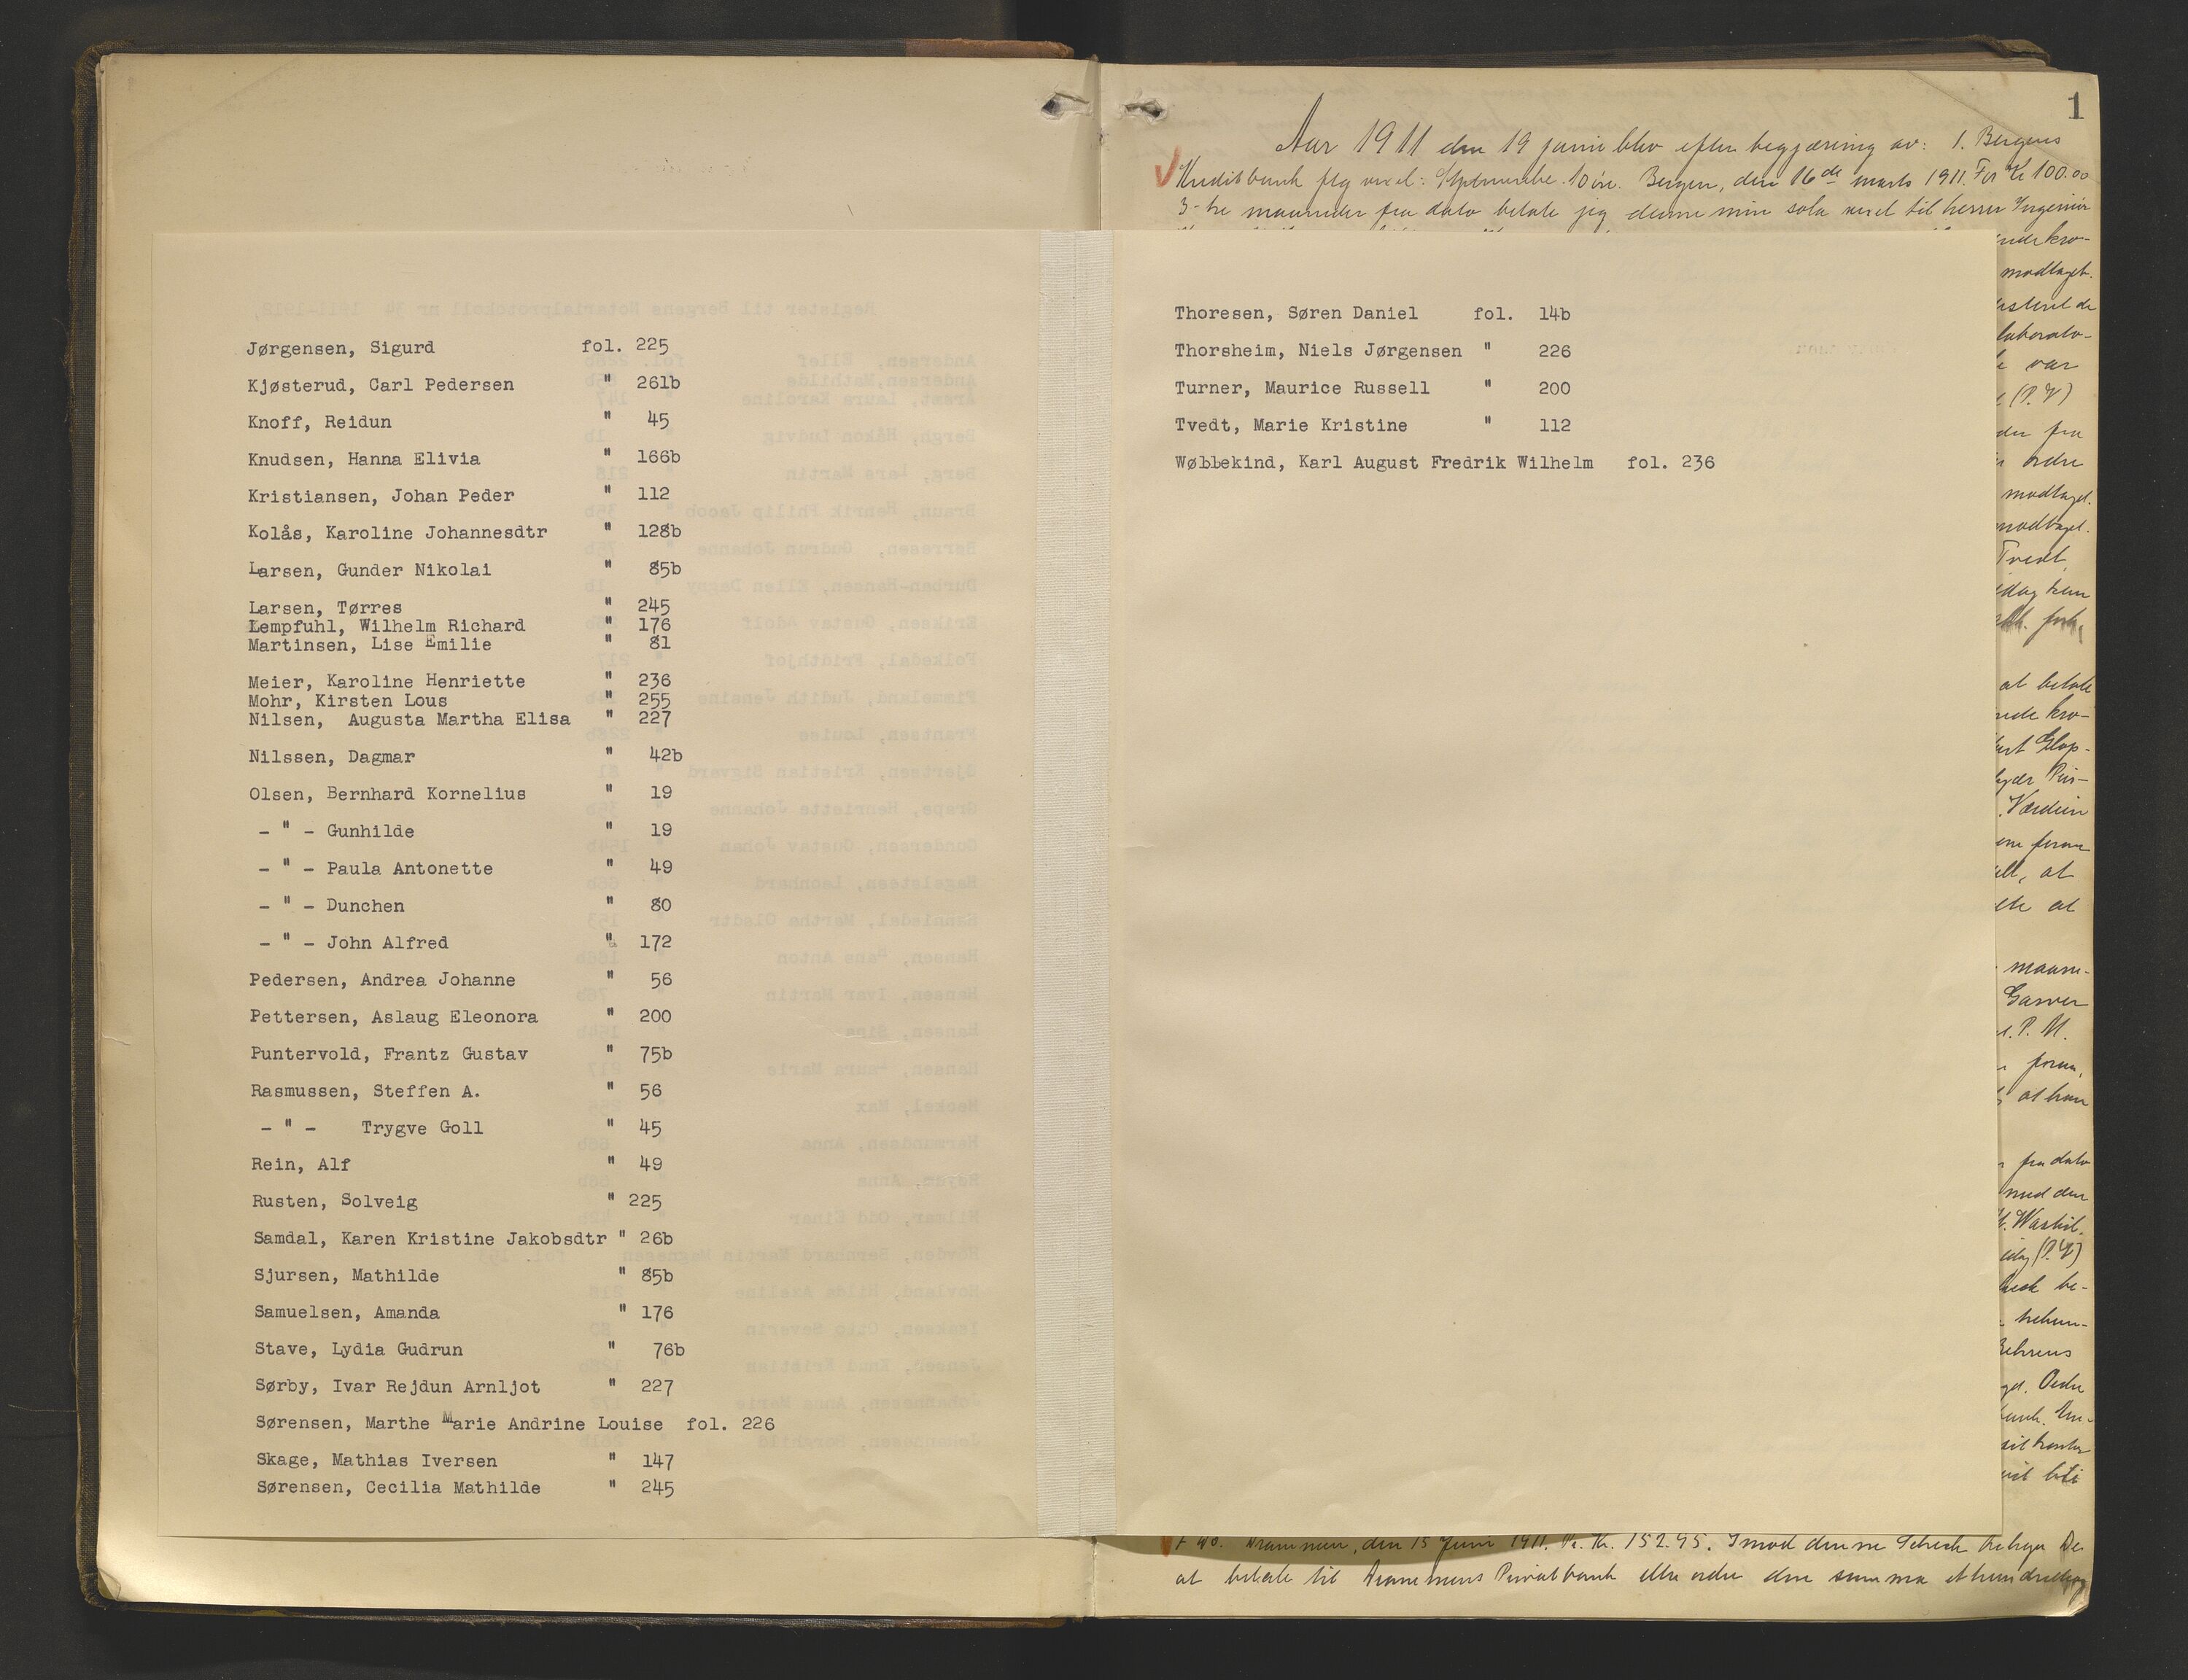 Jørgensen, Sigurd fol. 225
Kjøsterud, Carl Pedersen " 261b
Knoff, Reidun " 45
Knudsen, Hanna Elivia " 166b
Kristiansen, Johan Peder " 112
Kolås, Karoline Johannesdtr " 128b
Larsen, Gunder Nikolai " 85b
Larsen, Tørres " 245
Lempfuhl, Wilhelm Richard " 176
Martinsen, Lise Emilie " 81
Meier, Karoline Henriette " 236
Mohr, Kirsten Lous " 255
Nilsen, Augusta Martha Elisa " 227
Nilssen, Dagmar " 42b
Olsen, Bernhard Kornelius " 19
- " - Gunhilde " 19
- " - Paula Antonette " 49
- " - Dunchen " 80
- " - John Alfred " 172
Pedersen, Andrea Johanne " 56
Pettersen, Aslaug Eleonora " 200
Puntervold, Frantz Gustav " 75b
Rasmussen, Steffen A. " 56
- " - Trygve Goll " 45
Rein, Alf " 49
Rusten, Solveig " 225
Samdal, Karen Kristine Jakobsdtr " 26b
Sjursen, Mathilde " 85b
Samuelsen, Amanda " 176
Stave, Lydia Gudrun " 76b
Sørby, Ivar Rejdun Arnljot " 227
Sørensen, Marthe Marie Andrine Louise fol. 226
Skage, Mathias Iversen " 147
Sørensen, Cecilia Mathilde " 245
1
Aar 1911 den 19 juni blev efter begjæring av: 1. Bergens
Kreditbank flg vexel: Stptmerke 10 øre. Bergen, den 16de marts 1911. For Kr 100.00
3-tre maaneder fra dato betale jeg denne min sola vexel til herrer Ingeniør
Thoresen, Søren Daniel fol. 14b
Thorsheim, Niels Jørgensen " 226
Turner, Maurice Russell " 200
Tvedt, Marie Kristine " 112
Wøblekind, Karl August Fredrik Wilhelm fol. 236
modtaget.
var
(P. V)
der fra
ordre
modtaget.
modtaget.
Tvedt
idag hun
at betale
Værdien
at
at
maane-
P. M.
at han
fra dato
med den
idag (P. V)
be-
Behrens
Ordre
Drammen, den 15 Juni 1911. Pr. Kr. 152.95. Imod denne Check behager De
at betale til Drammens Privatbank eller ordre den summa ethundredeog